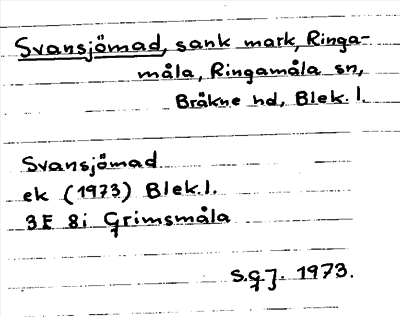 Svansjömad, sank mark, Ringa-
måla, Ringamåla sn,
Bräkne hd, Blek. l.
Svansjömad
ek (1973) Blek.l.
3E 8i Grimsmåla
S.G.J. 1973.